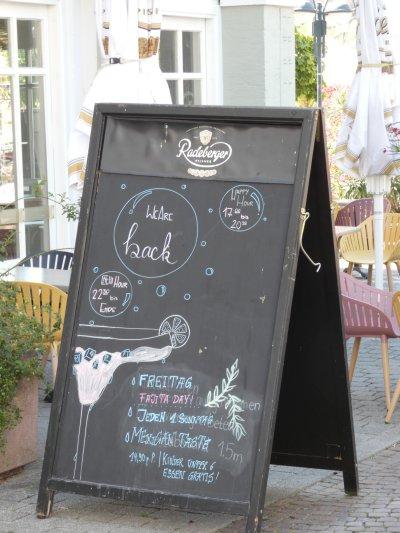 Radeberger
PILSNER
We Are
back
Happy
Hour
17:00
bis
20:00
Hour
22:00 bis
Ende
FREITAG
FAJITA DAY!
JEDEN 1 SONNTAG
MEXICAN TASTE
19,90 P.P. | KINDER UNTER 6
ESSEN GRATIS!
1,5m